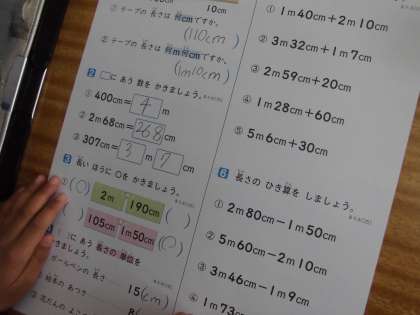 10cm
② テープの 長さは 何cmですか。
(110cm)
② テープの 長さは 何m何cmですか。
(1m10cm)
2 □に あう 数を かきましょう。
① 400cm=4m
② 2m68cm=268cm
③ 307cm=3m7cm
3 長い ほうに ○を かきましょう。
① (○) 2m 190cm ( )
( ) 105cm 1m50cm (○)
に あう 長さの 単位を
きましょう。
ボールペンの 長さ
15(cm)
絵本の あつさ
8
③ 花だんの よこ
① 1m40cm+2m10cm
② 3m32cm+1m7cm
③ 2m59cm+20cm
④ 1m28cm+60cm
⑤ 5m6cm+30cm
6 長さの ひき算を しましょう。
① 2m80cm-1m50cm
② 5m60cm-2m10cm
③ 3m46cm-1m9cm
④ 1m73cm